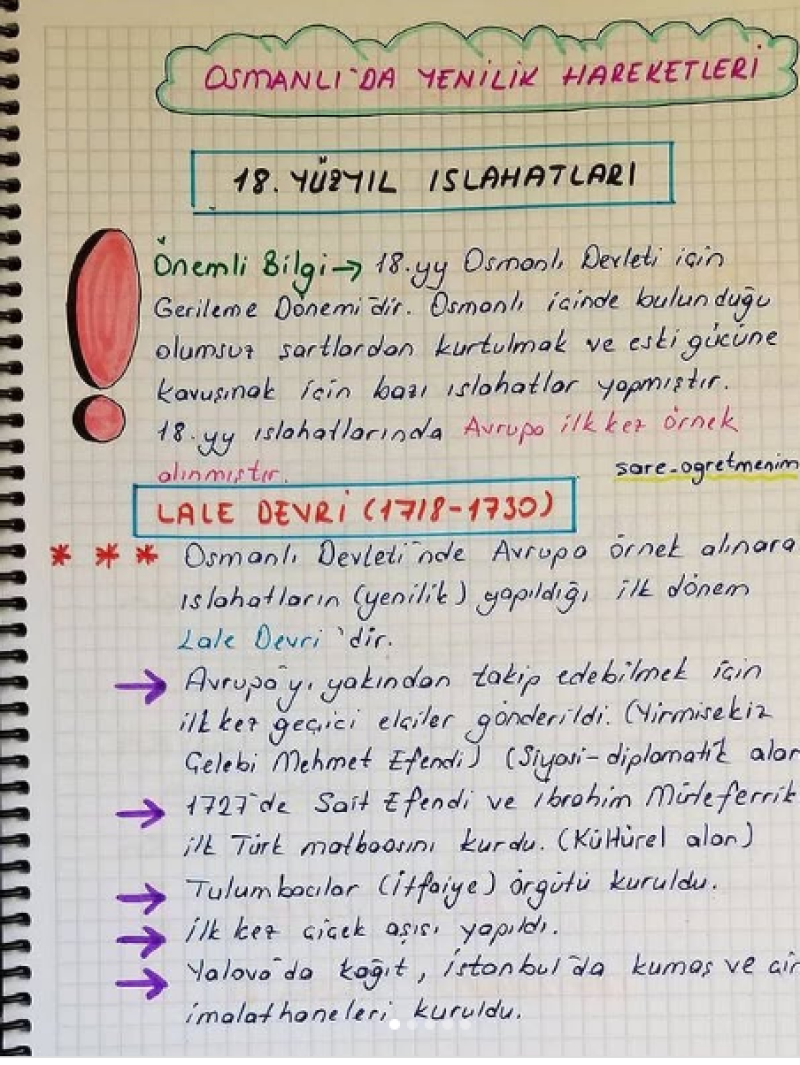 OSMANLI'DA YENİLİK HAREKETLERİ
18. YÜZYIL ISLAHATLARI
Önemli Bilgi → 18.yy Osmanlı Devleti için
Gerileme Dönemi'dir. Osmanlı içinde bulunduğu
olumsuz şartlardan kurtulmak ve eski gücüne
kavuşmak için bazı ıslahatlar yapmıştır.
18.yy ıslahatlarında Avrupa ilk kez örnek
alınmıştır.
sare-ogretmenim
LALE DEVRİ (1718-1730)
*** Osmanlı Devleti'nde Avrupa örnek alınara
ıslahatların (yenilik) yapıldığı ilk dönem
Lale Devri'dir.
→ Avrupa'yı yakından takip edebilmek için
ilk kez geçici elçiler gönderildi. (Yirmisekiz
Çelebi Mehmet Efendi) (Siyasi-diplomatik alan
→ 1727'de Sait Efendi ve İbrahim Müteferrik
ilk Türk matbaasını kurdu. (Kültürel alan)
→ Tulumbacılar (İtfaiye) örgütü kuruldu.
→ İlk kez çiçek aşısı yapıldı.
→ Yalova'da kağıt, İstanbul'da kumaş ve çin
imalathaneleri kuruldu.